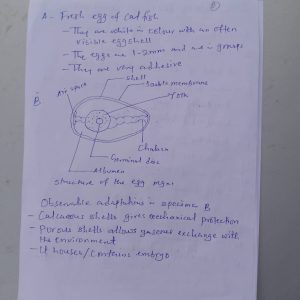 A - Fresh egg of cat fish
- They are white in colour with an often
visible eggshell
- The eggs are 1-2mm and are in groups
- They are very adhesive
Shell
Air space
double membrane
Yolk
B
Chalaza
Germinal disc
Albumen
Structure of the egg
Observable adaptations in specimen B
- Calcarous shells gives mechanical protection
- Porous shells allows gaseous exchange with
the environment
- It houses/contains embryo